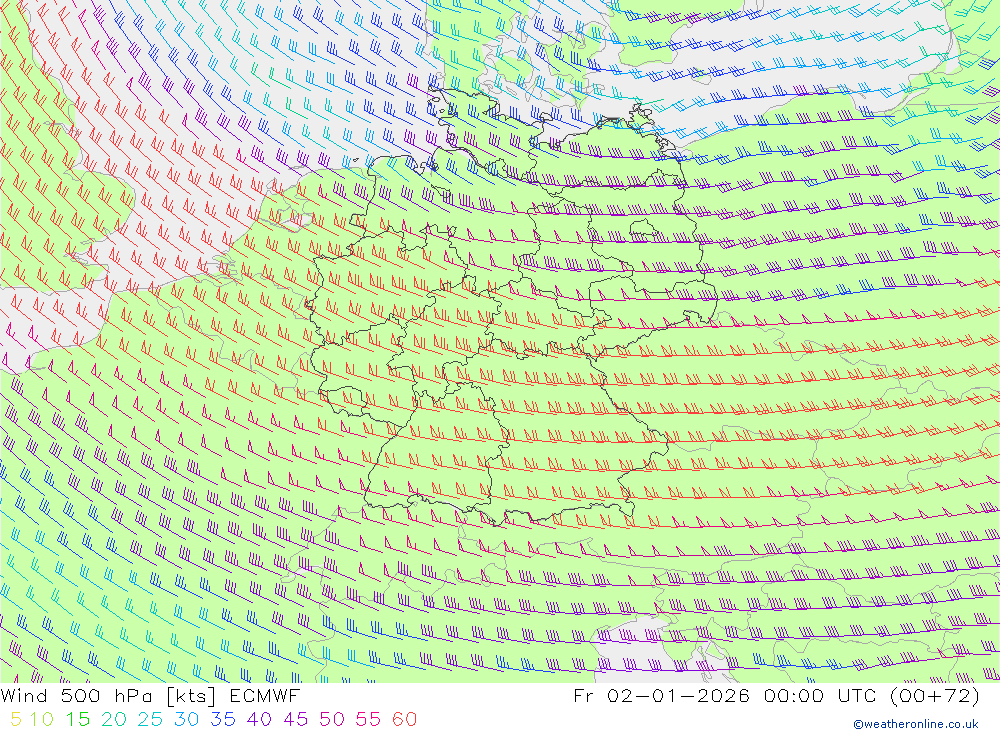 Wind 500 hPa [kts] ECMWF Fr 02-01-2026 00:00 UTC (00+72)
5 10 15 20 25 30 35 40 45 50 55 60
©weatheronline.co.uk